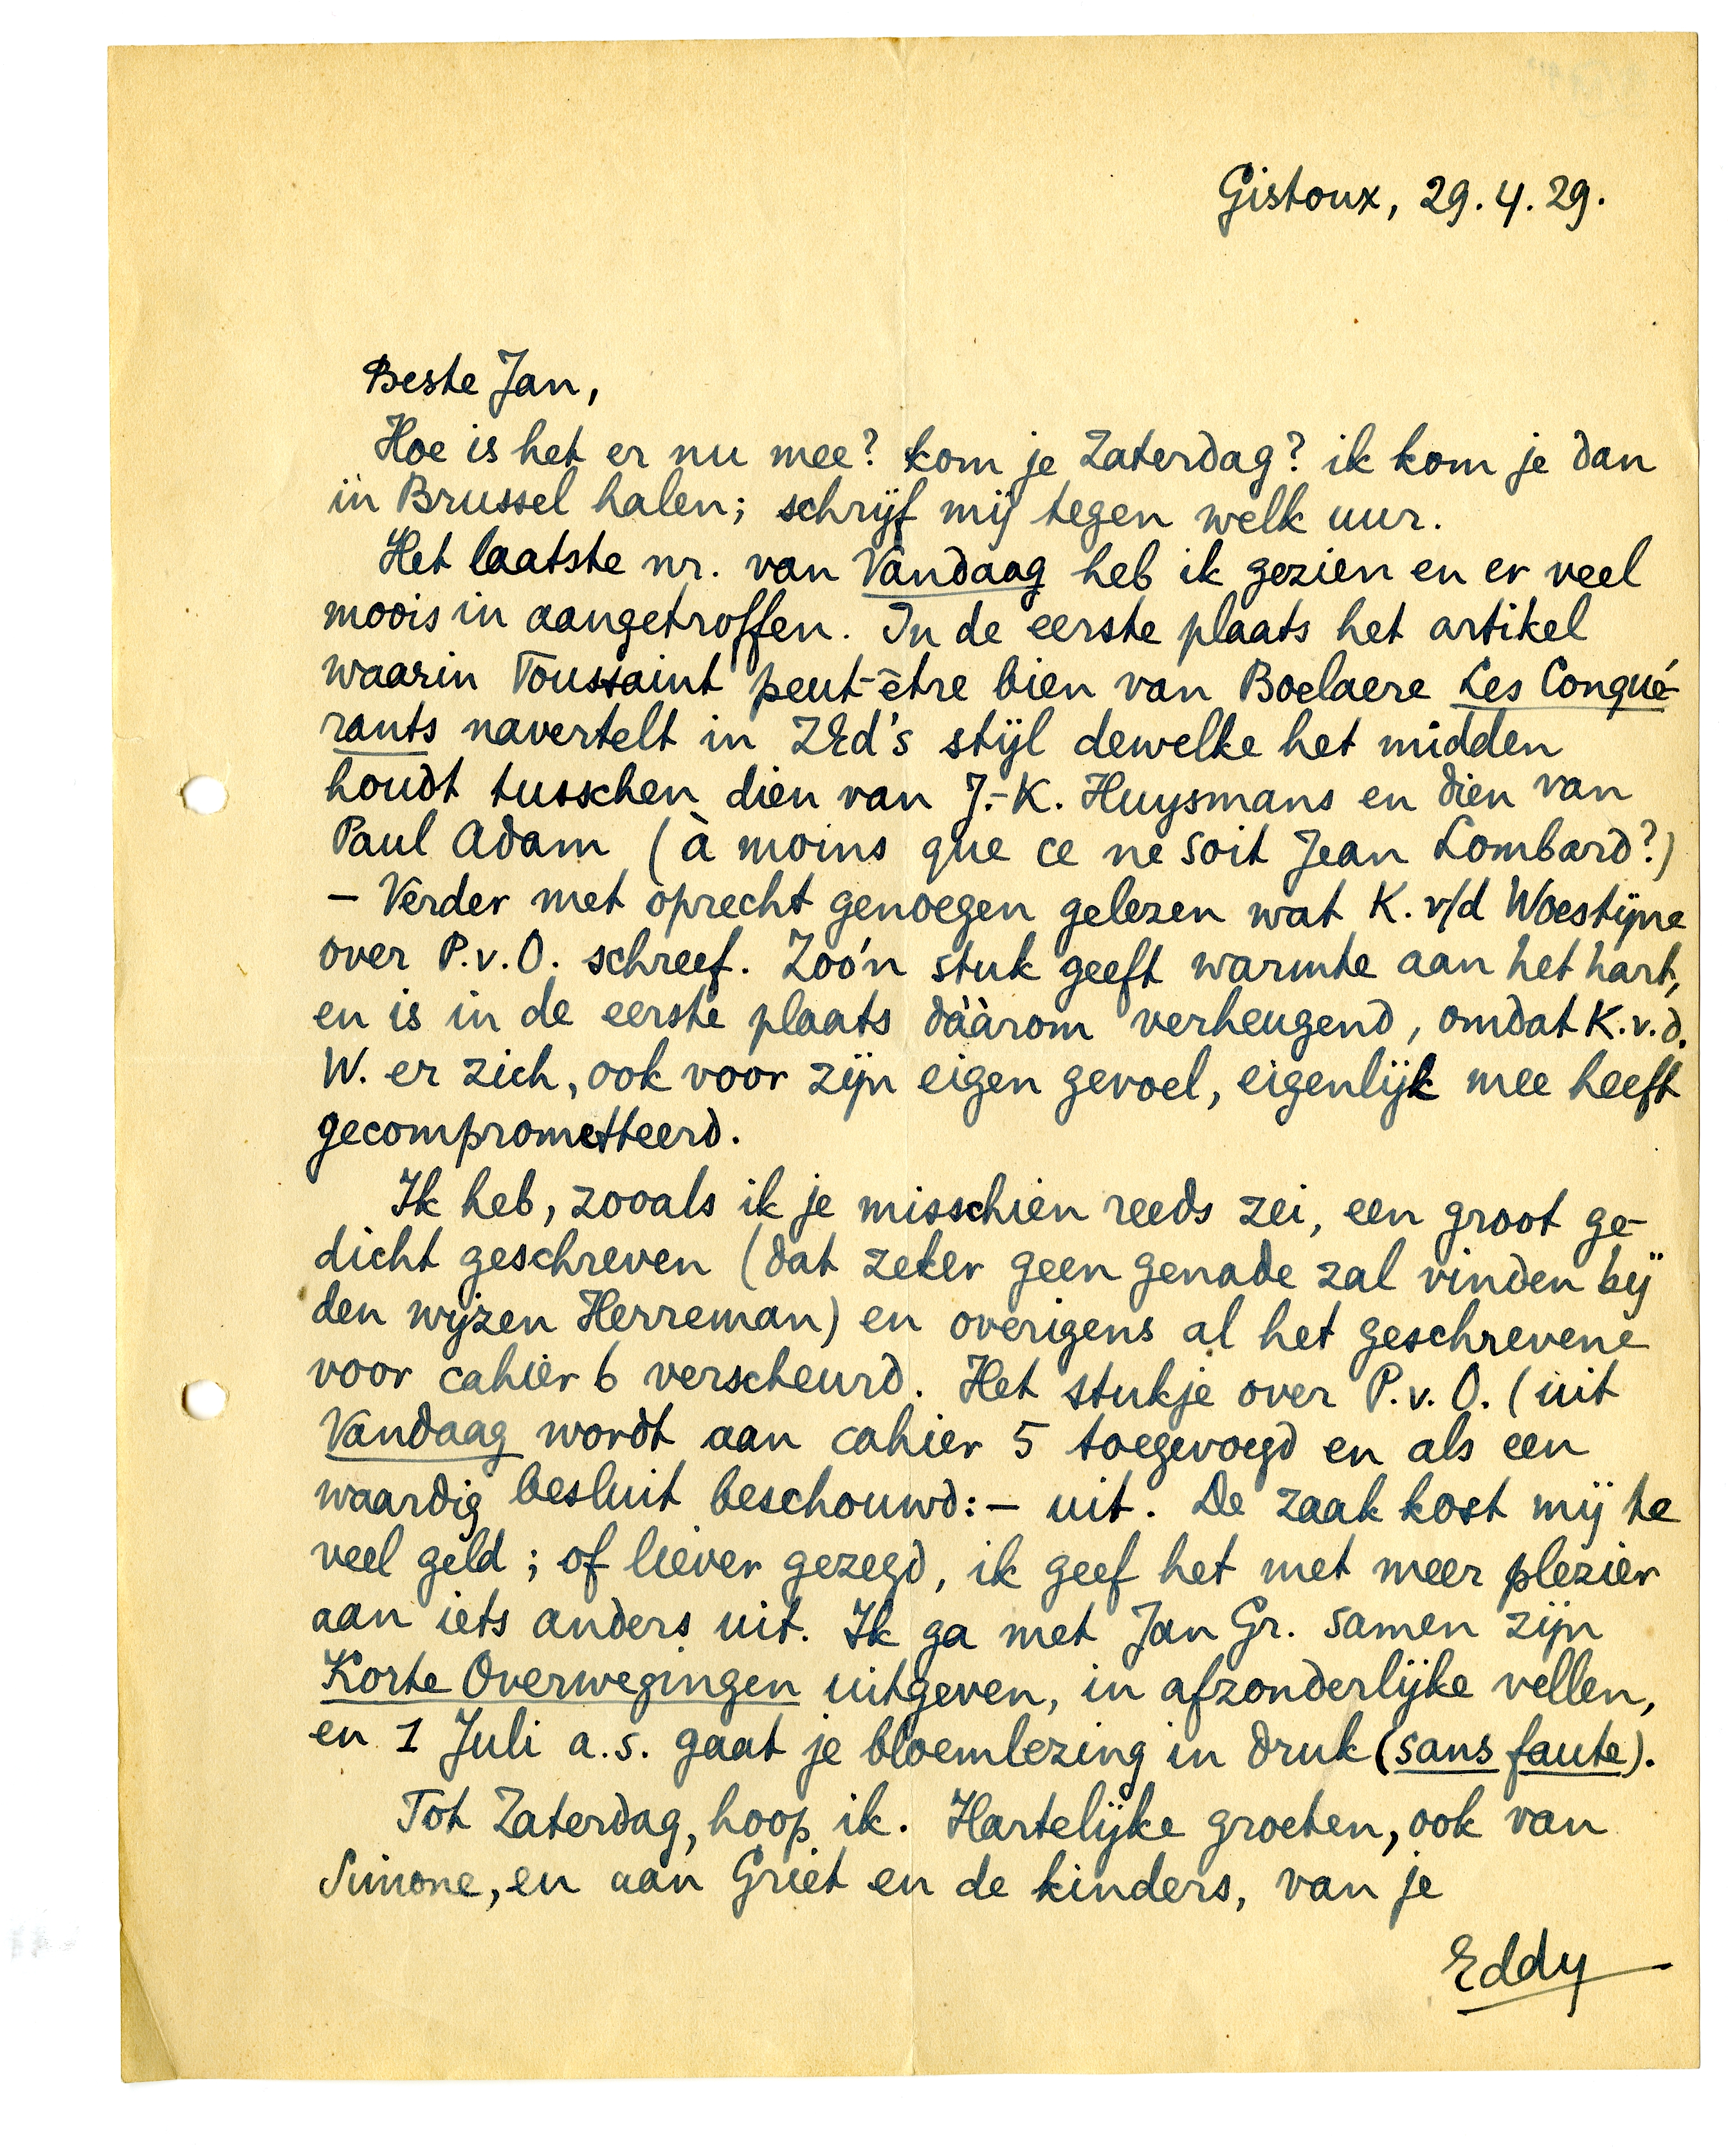 Gistoux, 29.4.29.
Beste Jan,
Hoe is het er nu mee? kom je Zaterdag? ik kom je dan
in Brussel halen; schrijf mij tegen welk uur.
Het laatste nr. van Vandaag heb ik gezien en er veel
moois in aangetroffen. In de eerste plaats het artikel
waarin Toussaint peut-être bien van Boelaere Les Conqué-
rants navertelt in ZEd's stijl dewelke het midden
houdt tusschen dien van J.-K. Huysmans en dien van
Paul Adam (à moins que ce ne soit Jean Lombard?)
– Verder met oprecht genoegen gelezen wat K. v/d Woestijne
over P.v.O. schreef. Zoo'n stuk geeft warmte aan het hart,
en is in de eerste plaats dààrom verheugend, omdat K.v.d.
W. er zich, ook voor zijn eigen gevoel, eigenlijk mee heeft
gecomprometteerd.
Ik heb, zooals ik je misschien reeds zei, een groot ge-
dicht geschreven (dat zeker geen genade zal vinden bij
den wijzen Herreman) en overigens al het geschrevene
voor cahier 6 verscheurd. Het stukje over P.v.O. (uit
Vandaag wordt aan cahier 5 toegevoegd en als een
waardig besluit beschouwd: – uit. De zaak kost mij te
veel geld; of liever gezegd, ik geef het met meer plezier
aan iets anders uit. Ik ga met Jan Gr. samen zijn
Korte Overwegingen uitgeven, in afzonderlijke vellen,
en 1 Juli a.s. gaat je bloemlezing in druk (sans faute).
Tot Zaterdag, hoop ik. Hartelijke groeten, ook van
Simone, en aan Griet en de kinders, van je
Eddy